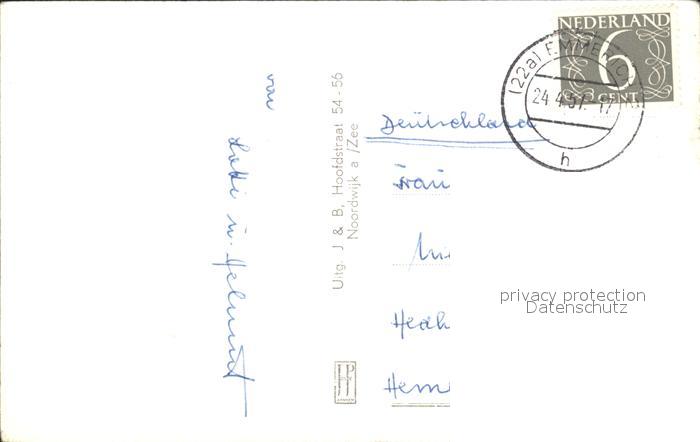 NEDERLAND
6
CENT
(22a) EMMERICH
24.4.57.-17
h
von
Lotti u. Helmut
Uitg. J & B, Hoofdstraat 54-56
Noordwijk a/Zee
Deutschland
Frau
privacy protection
Datenschutz